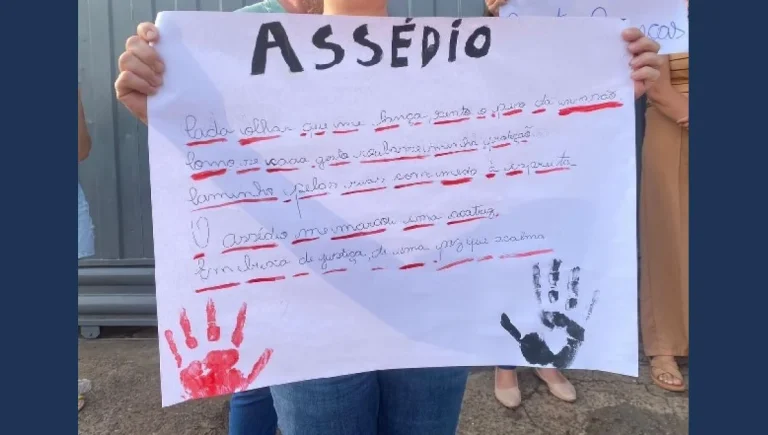 ASSÉDIO
Cada olhar que me lança, sinto o peso da
Como se cada gesto roubasse minha proteção
Caminho pelas ruas com medo à espreita
O assédio me marcou uma cicatriz
Em busca de justiça, de uma paz que acalma